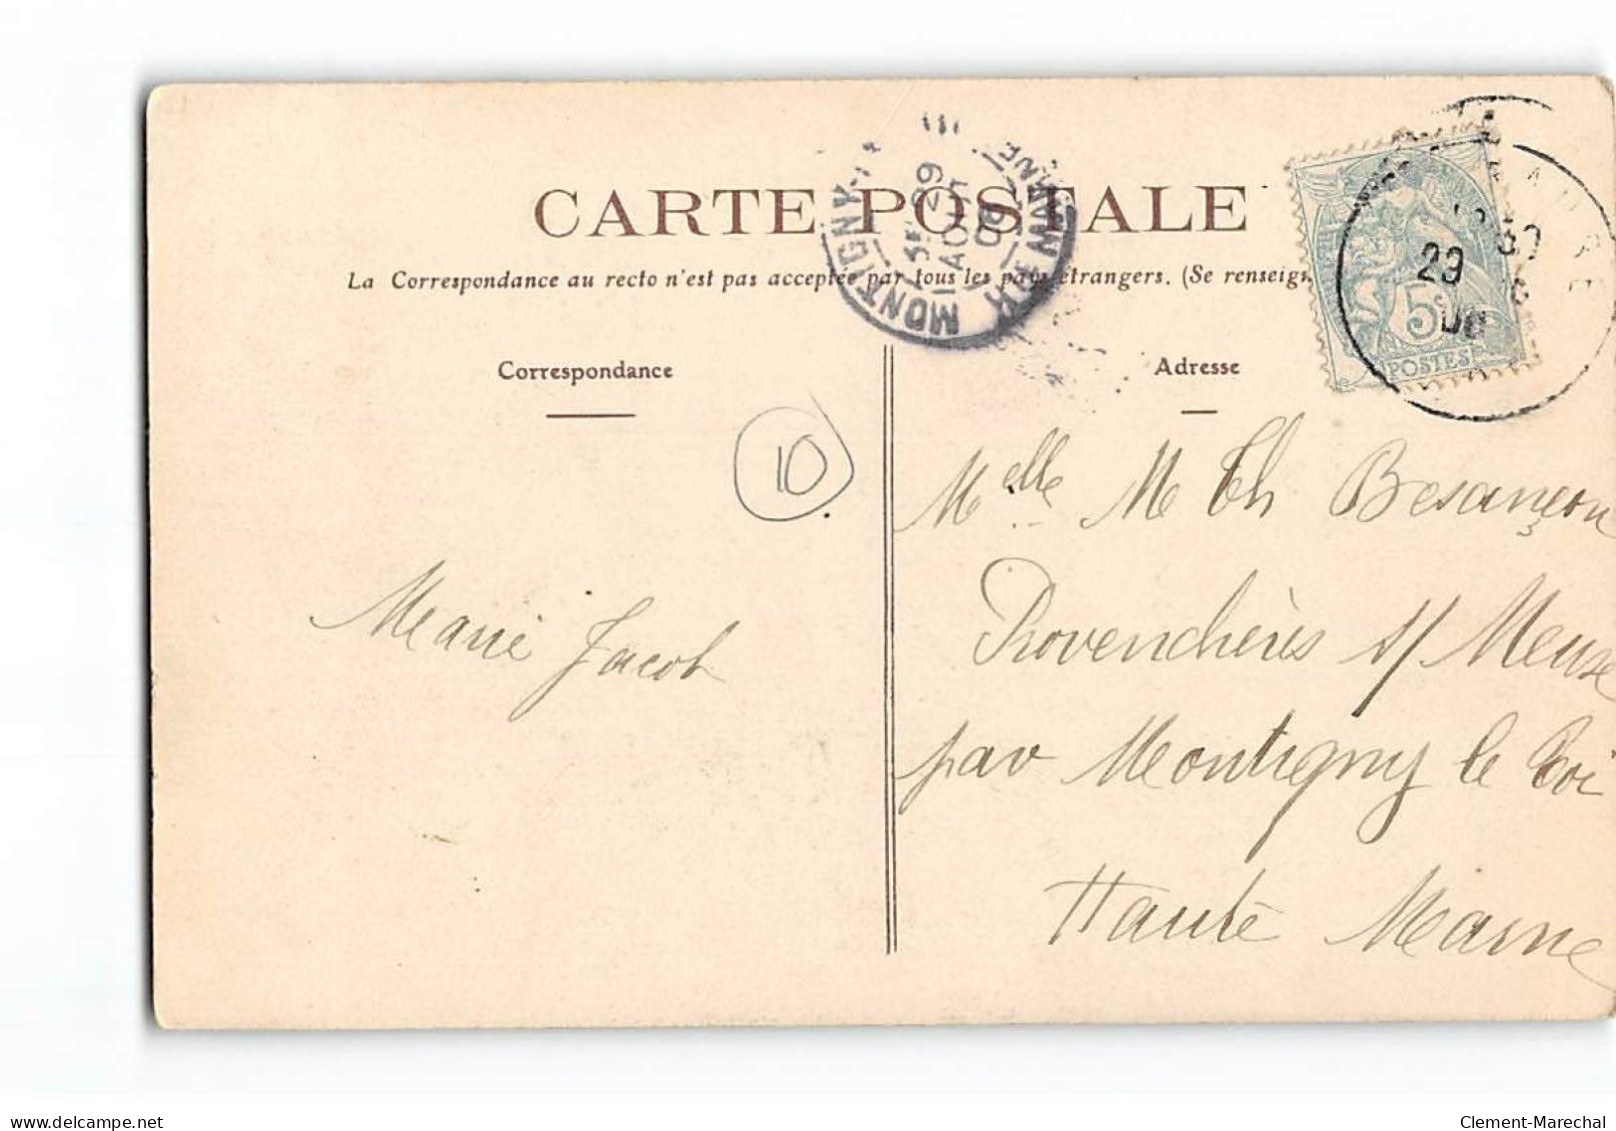 CARTE POSTALE
La Correspondance au recto n'est pas acceptée par tous les pays étrangers. (Se renseign
Correspondance
Adresse
10
Marie Jacob
Melle M Th Besançon
Provenchères s/ Meuse
par Montigny le Roi
Haute Marne
MONTIGNY-L
HTE MARNE
29
AOUT
06
29
06
5c
POSTES
delcampe.net
Clement-Marechal